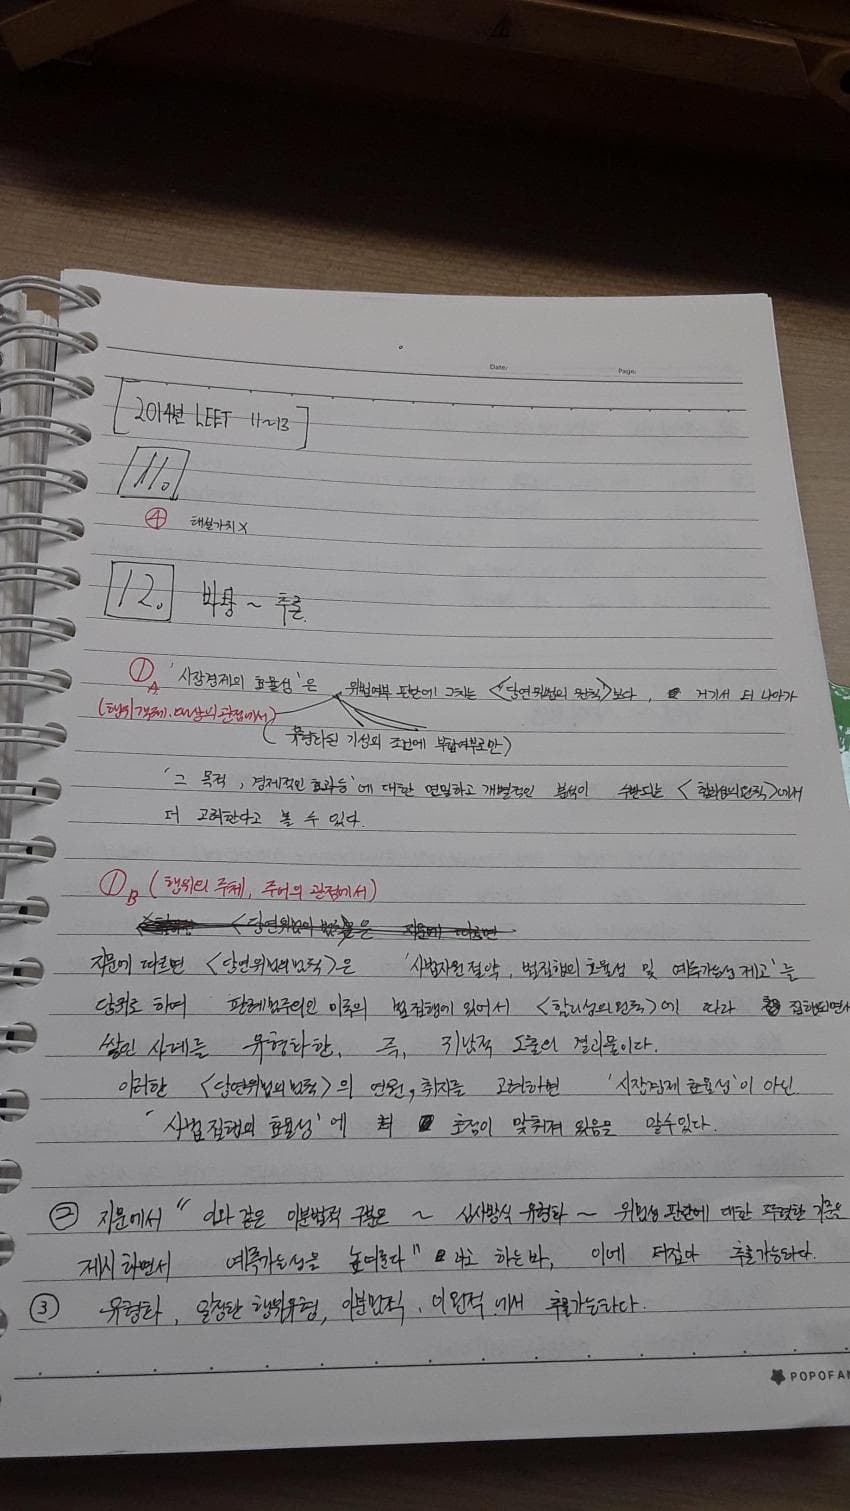 Date:
Page:
[2014년 LEET 11~13]
11.
④ 해설가치X
12. 바탕 ~ 추론.
①A '시장경제의 효율성'은 위법여부 판단에 그치는 <당연위법의 원칙>보다, 거기서 더 나아가
(행위객체, 대상의 관점에서)
(유형화된 기성의 조건에 부합여부로만)
'그 목적, 경제적인 효과등'에 대한 면밀하고 개별적인 분석이 수반되는 <합리성의 원칙>에서
더 고려한다고 볼 수 있다.
①B (행위의 주체, 주어의 관점에서)
<당연위법의 원칙>은 지문에 따르면
지문에 따르면 <당연위법의 원칙>은 '사법자원 절약, 법집행의 효율성 및 예측가능성 제고'를
당위로 하여 판례법주의인 미국의 법집행에 있어서 <합리성의 원칙>에 따라 집행되면서
쌓인 사례를 유형화한, 즉, 귀납적 도출의 결과물이다.
이러한 <당연위법의 원칙>의 연원, 취지를 고려하면 '시장경제 효율성'이 아닌
'사법집행의 효율성'에 초점이 맞춰져 있음을 알수있다.
② 지문에서 "이와 같은 이분법적 구분은 ~ 심사방식 유형화 ~ 위법성 판단에 대한 뚜렷한 기준을
제시하면서 예측가능성을 높여준다" 라고 하는바, 이에 터잡아 추론가능하다.
③ 유형화, 일정한 행위유형, 이분법적, 이원적 에서 추론가능하다.
POPOFAN